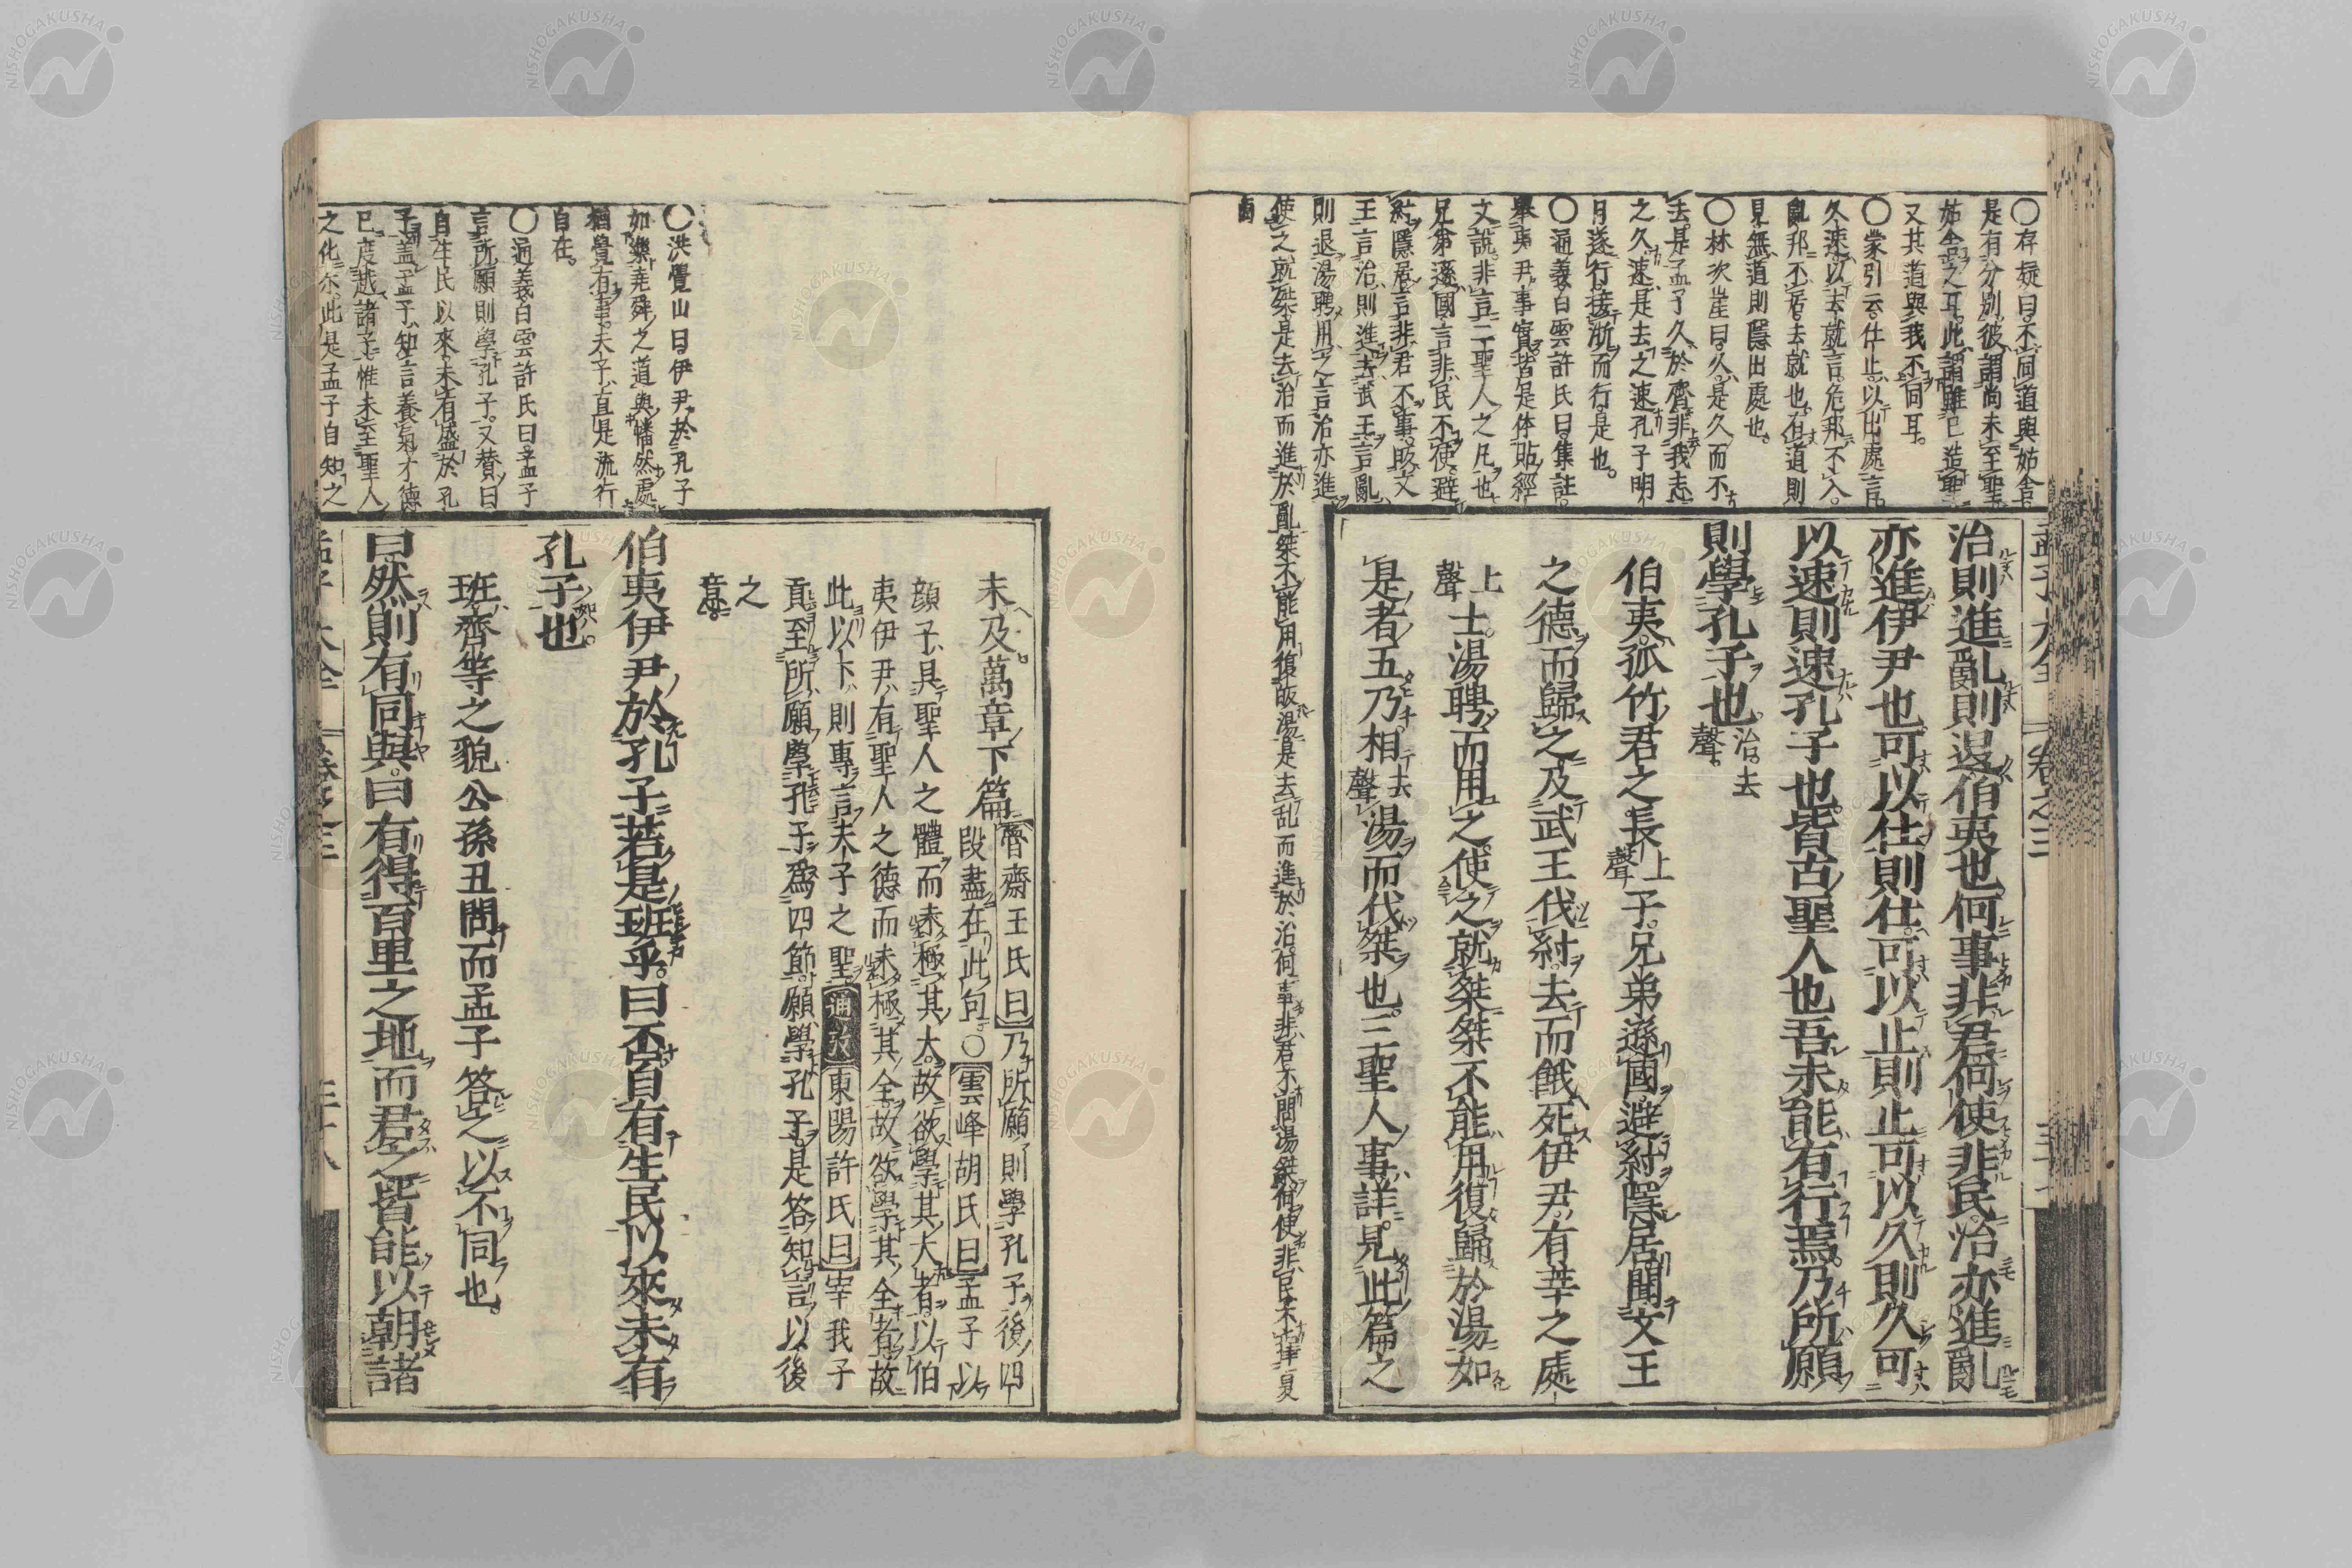 〇存疑曰不同道與姑舍
是有分別彼謂尚未至聖
姑舍之耳此謂雖已造聖
又其道與我不同耳
〇蒙引云仕止以出處言
久速以去就言危邦不入
亂邦不居去就也有道則
見無道則隱出處也
〇林次崖曰久是久而不
去是孟子久於齊非我志
之久速是去之速孔子明
日遂行接淅而行是也
〇通義白雲許氏曰集註
擧夷尹事實皆是体貼經
文說非言二聖人之凡也
兄弟遜國言非民不使避
紂隱居言非君不事皈文
王言治則進去武王言亂
則退湯聘用之言治亦進
使之就桀是去治而進於亂桀不能用復皈湯是去乱而進於治何事非君不間湯桀何使非民不擇夏
商
孟子大全 卷之三 三十七
治則進亂則退伯夷也何事非君何使非民治亦進亂
亦進伊尹也可以仕則仕可以止則止可以久則久可
以速則速孔子也皆古聖人也吾未能有行焉乃所願
則學孔子也治去聲
伯夷孤竹君之長上聲子兄弟遜國避紂隱居聞文王
之德而歸之及武王伐紂去而餓死伊尹有莘之處
上聲士湯聘而用之使之就桀桀不能用復歸於湯如
是者五乃相去聲湯而伐桀也三聖人事詳見此篇之
未及萬章下篇魯齋王氏曰乃所願則學孔子後四
段盡在此句〇雲峰胡氏曰孟子以
顔子具聖人之體而未極其大故欲學其大者以伯
夷伊尹有聖人之德而未極其全故欲學其全者故
此以下則專言夫子之聖通攷東陽許氏曰宰我子
貢至所願學孔子爲四節願學孔子是答知言以後
之
意
〇洪覺山曰伊尹於孔子
如樂堯舜之道與幡然處
猶覺有事夫子直是流行
自在
〇通義白雲許氏曰孟子
言所願則學孔子又賛曰
自生民以來未有盛於孔
子蓋孟子知言養氣才德
已度越諸子惟未至聖人
之化尓此是孟子自知之
伯夷伊尹於孔子若是班乎曰否自有生民以來未有
孔子也
班齊等之貌公孫丑問而孟子答之以不同也
曰然則有同與曰有得百里之地而君之皆能以朝諸
孟子大全 卷之三 三十八